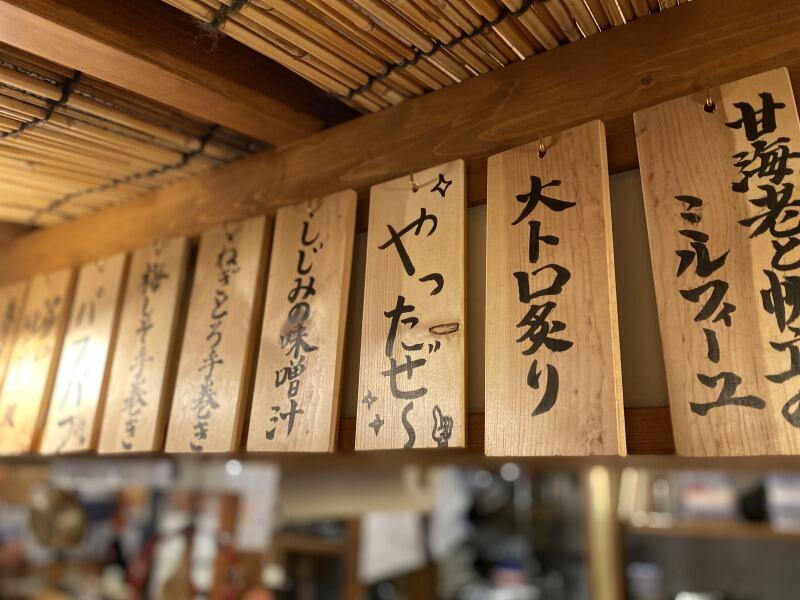 甘海老と帆立の
ミルフィーユ
大トロ炙り
やったぜ〜
しじみの味噌汁
ねぎとろ手巻き
梅しそ手巻き
パフパフ